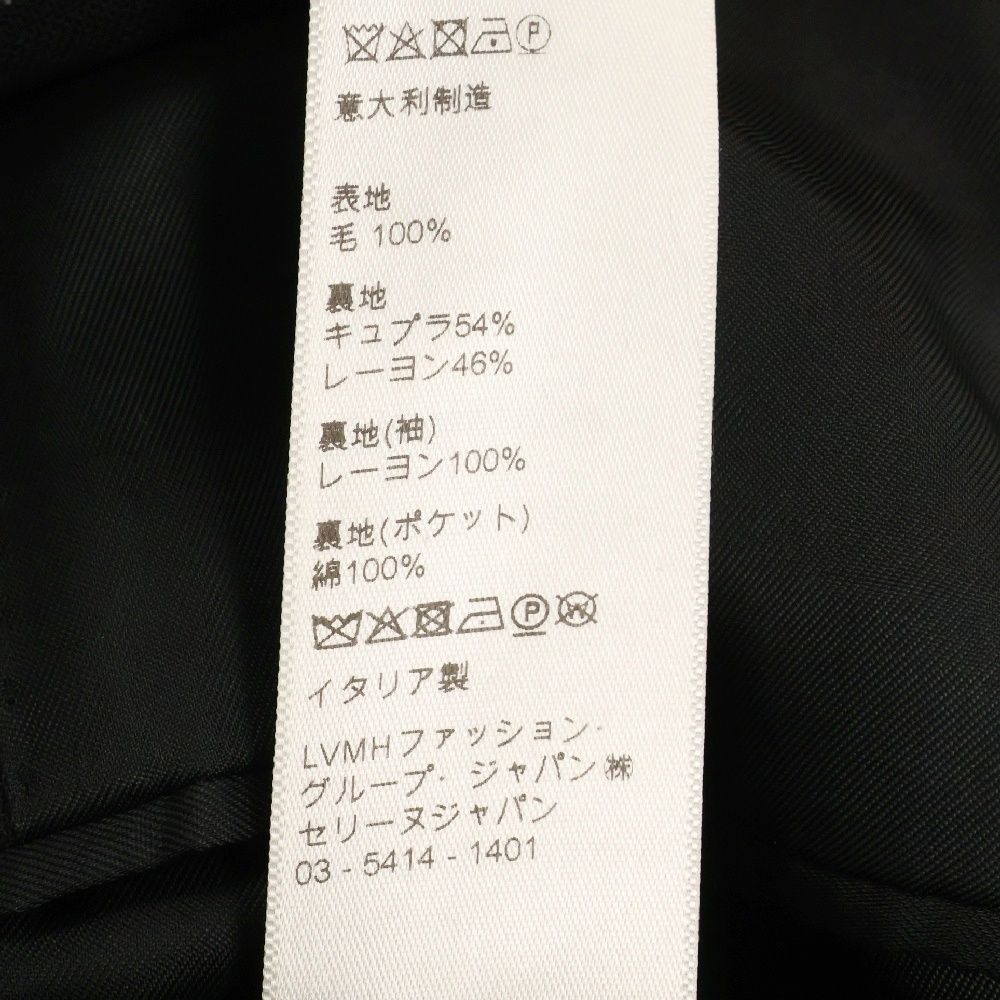 P
意大利制造
表地
毛 100%
裏地
キュプラ54%
レーヨン46%
裏地(袖)
レーヨン100%
裏地(ポケット)
綿100%
P W
イタリア製
LVMHファッション・
グループ・ジャパン㈱
セリーヌジャパン
03 - 5414 - 1401